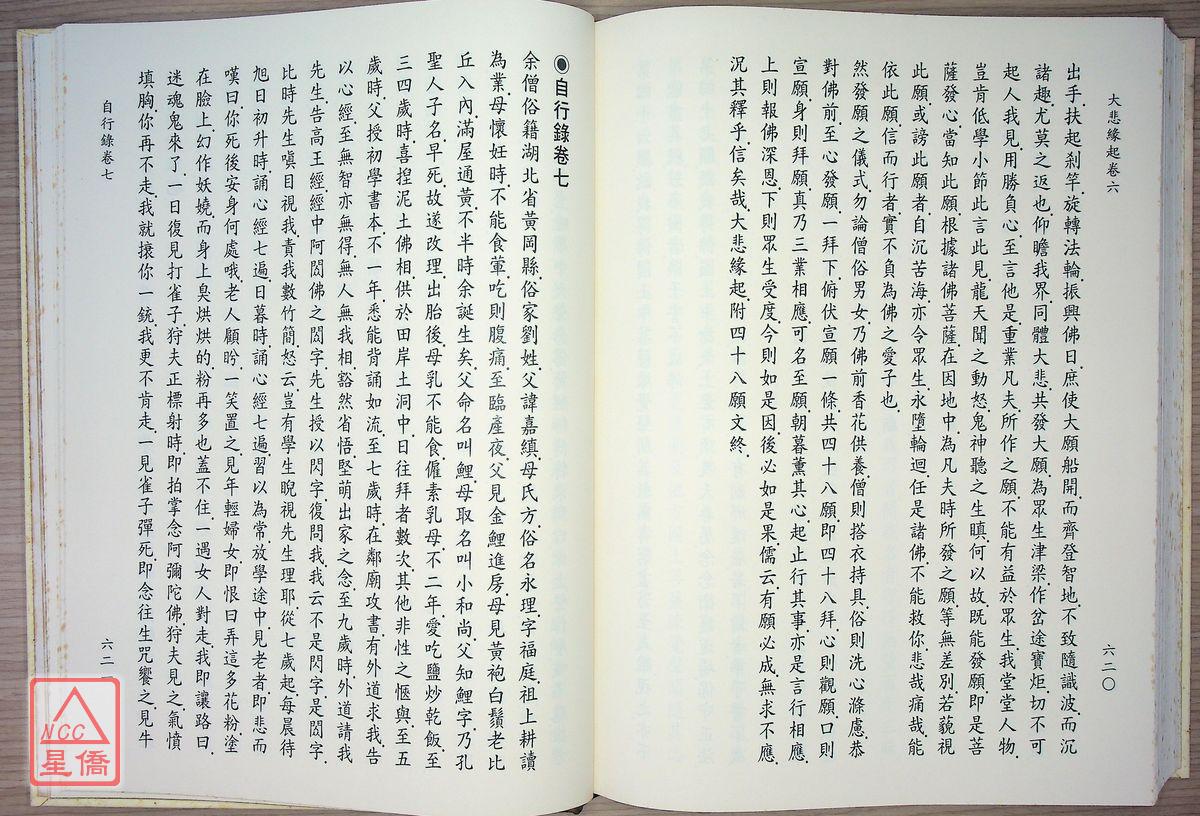 大悲緣起卷六
六二〇
出手.扶起剎竿.旋轉法輪.振興佛日.庶使大願船開.而齊登智地.不致隨識波而沉
諸趣.尤莫之返也.仰瞻我界.同體大悲.共發大願.為眾生津梁.作岔途寶炬.切不可
起人我見.用勝負心.至言他是重業凡夫.所作之願.不能有益於眾生.我堂堂人物.
豈肯低學小節.此言此見.龍天聞之動怒.鬼神聽之生瞋.何以故.既能發願.即是菩
薩發心.當知此願.根據諸佛菩薩.在因地中.為凡夫時.所發之願.等無差別.若藐視
此願.或謗此願者.自沉苦海.亦令眾生永墮輪迴.任是諸佛.不能救你.悲哉痛哉.能
依此願.信而行者.實不負為佛之愛子也.
然發願之儀式.勿論僧俗男女.乃佛前香花供養.僧則搭衣持具.俗則洗心滌慮.恭
對佛前.至心發願.一拜下俯伏.宣願一條.共四十八願.即四十八拜.心則觀願.口則
宣願.身則拜願.真乃三業相應.可名至願.朝暮薰其心.起止行其事.亦是言行相應.
上則報佛深恩.下則眾生受度.今則如是因.後必如是果.儒云.有願必成.無求不應.
況其釋乎.信矣哉.大悲緣起附四十八願文終.
◉自行錄卷七
余僧俗籍湖北省黃岡縣.俗家劉姓.父諱嘉縝.母氏方.俗名永理.字福庭.祖上耕讀
為業.母懷妊時.不能食葷.吃則腹痛.至臨產夜.父見金鯉進房.母見黃袍白鬚老比
丘入內.滿屋通黃.不半時余誕生矣.父命名叫鯉.母取名叫小和尚.父知鯉字.乃孔
聖人子名.早死.故遂改理.出胎後.母乳不能食.僱素乳母.不二年.愛吃鹽炒乾飯.至
三四歲時.喜捏泥土佛相.供於田岸土洞中.日往拜者數次.其他非性之愜與.至五
歲時.父授初學書本.不一年.悉能背誦如流.至七歲時.在鄰廟攻書.有外道求我告
以心經.至無智亦無得.無人無我相.豁然省悟.堅萌出家之念.至九歲時.外道請我
先生.告高王經.經中阿閦佛之閦字.先生授以閃字.復問我.我云不是閃字.是閦字.
比時先生嗔目視我.責我數竹簡.怒云.豈有學生睨視先生理耶.從七歲起.每晨待
旭日初升時.誦心經七遍.日暮時.誦心經七遍.習以為常.放學途中.見老者.即悲而
嘆曰.你死後安身何處哦.老人顧盻.一笑置之.見年輕婦女.即恨曰.弄這多花粉.塗
在臉上.幻作妖嬈.而身上臭烘烘的.粉再多也蓋不住.一遇女人對走.我即讓路曰.
迷魂鬼來了.一日復見打雀子.狩夫正標射時.即拍掌念阿彌陀佛.狩夫見之.氣憤
填胸.你再不走.我就㨰你一銃.我更不肯走.一見雀子彈死.即念往生咒饗之.見牛
自行錄卷七
六二
NCC
星僑